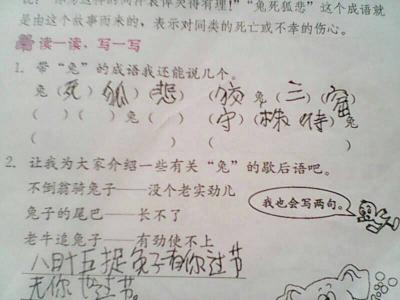 是由这个故事而来的，表示对同类的死亡或不幸的伤心。
读一读，写一写
1. 带“兔”的成语我还能说几个。
兔（死）（狐）（悲） （狡）兔（三）（窟）
（ ）（ ）兔（ ） （守）（株）（待）兔
（ ） （ ）
2. 让我为大家介绍一些有关“兔”的歇后语吧。
不倒翁骑兔子——没个老实劲儿
兔子的尾巴——长不了
我也会写两句。
老牛追兔子——有劲使不上
八月十五捉兔子有你过节
无你也过节。